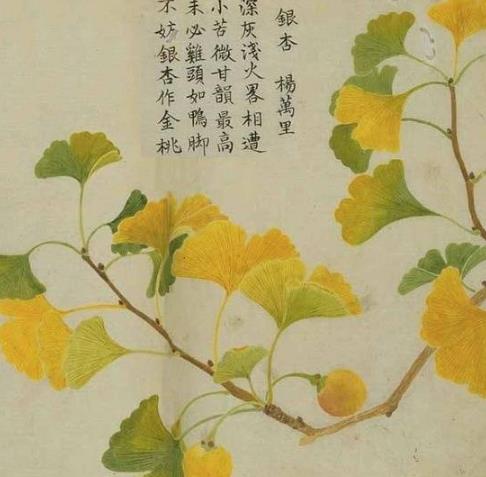 銀杏 楊萬里
深灰淺火畧相遭
小苦微甘韻最高
未必雞頭如鴨脚
不妨銀杏作金桃